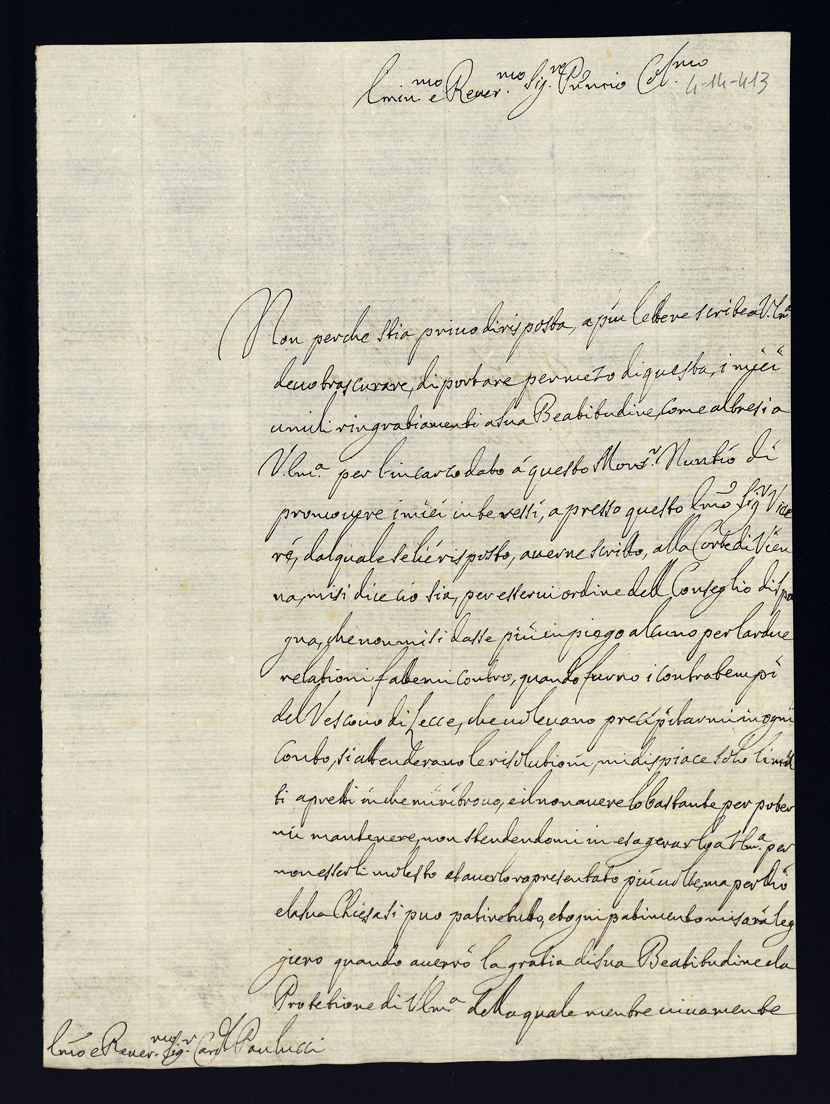 Emin.mo e Reuer.mo Sig.re P̃rncio Col.mo
4-14-413
Non perche stia priuo di risposta, a più lettere scritte a V.Em.a
deuo trascurare, di portare per mezo di questa, i miei
umili ringratiamenti a Sua Beatitudine, come altresi a
V.Em.a per l'incarco dato á questo Mons.r Nuntio di
promouere i miei interessi, apresso questo Emõ Sig.r Vice
ré, dal quale se li é risposto, auerne scritto, alla Corte di Vien
na, mi si dice ció sia, per esserui ordine dell Conseglio di Spa
gna, che non mi si dasse più inpiego alcuno per l'ardue
relationi fattemi contro, quando furno i contratempi
del Vescouo di Lecce, che uoleuano precipitarmi in ogni
conto, si attenderano le risolutioni, mi dispiace solo li mol
ti apretti in che mi ritrouo, e il non auere lo bastante per poter
mi mantenere, non stendendomi in esagerarlo a V.Em.a per
non esserli molesto et auerlo rapresentato più uolte, ma per Dio
e la sua Chiesa si puo patire tutto, et ogni patimento mi sará leg
giero quando auerró la gratia di Sua Beatitudine e la
Protetione di V.Em.a della quale mentre uiuamente
Em̃o e Reuer.mo Sig.r Card.l Paulucci